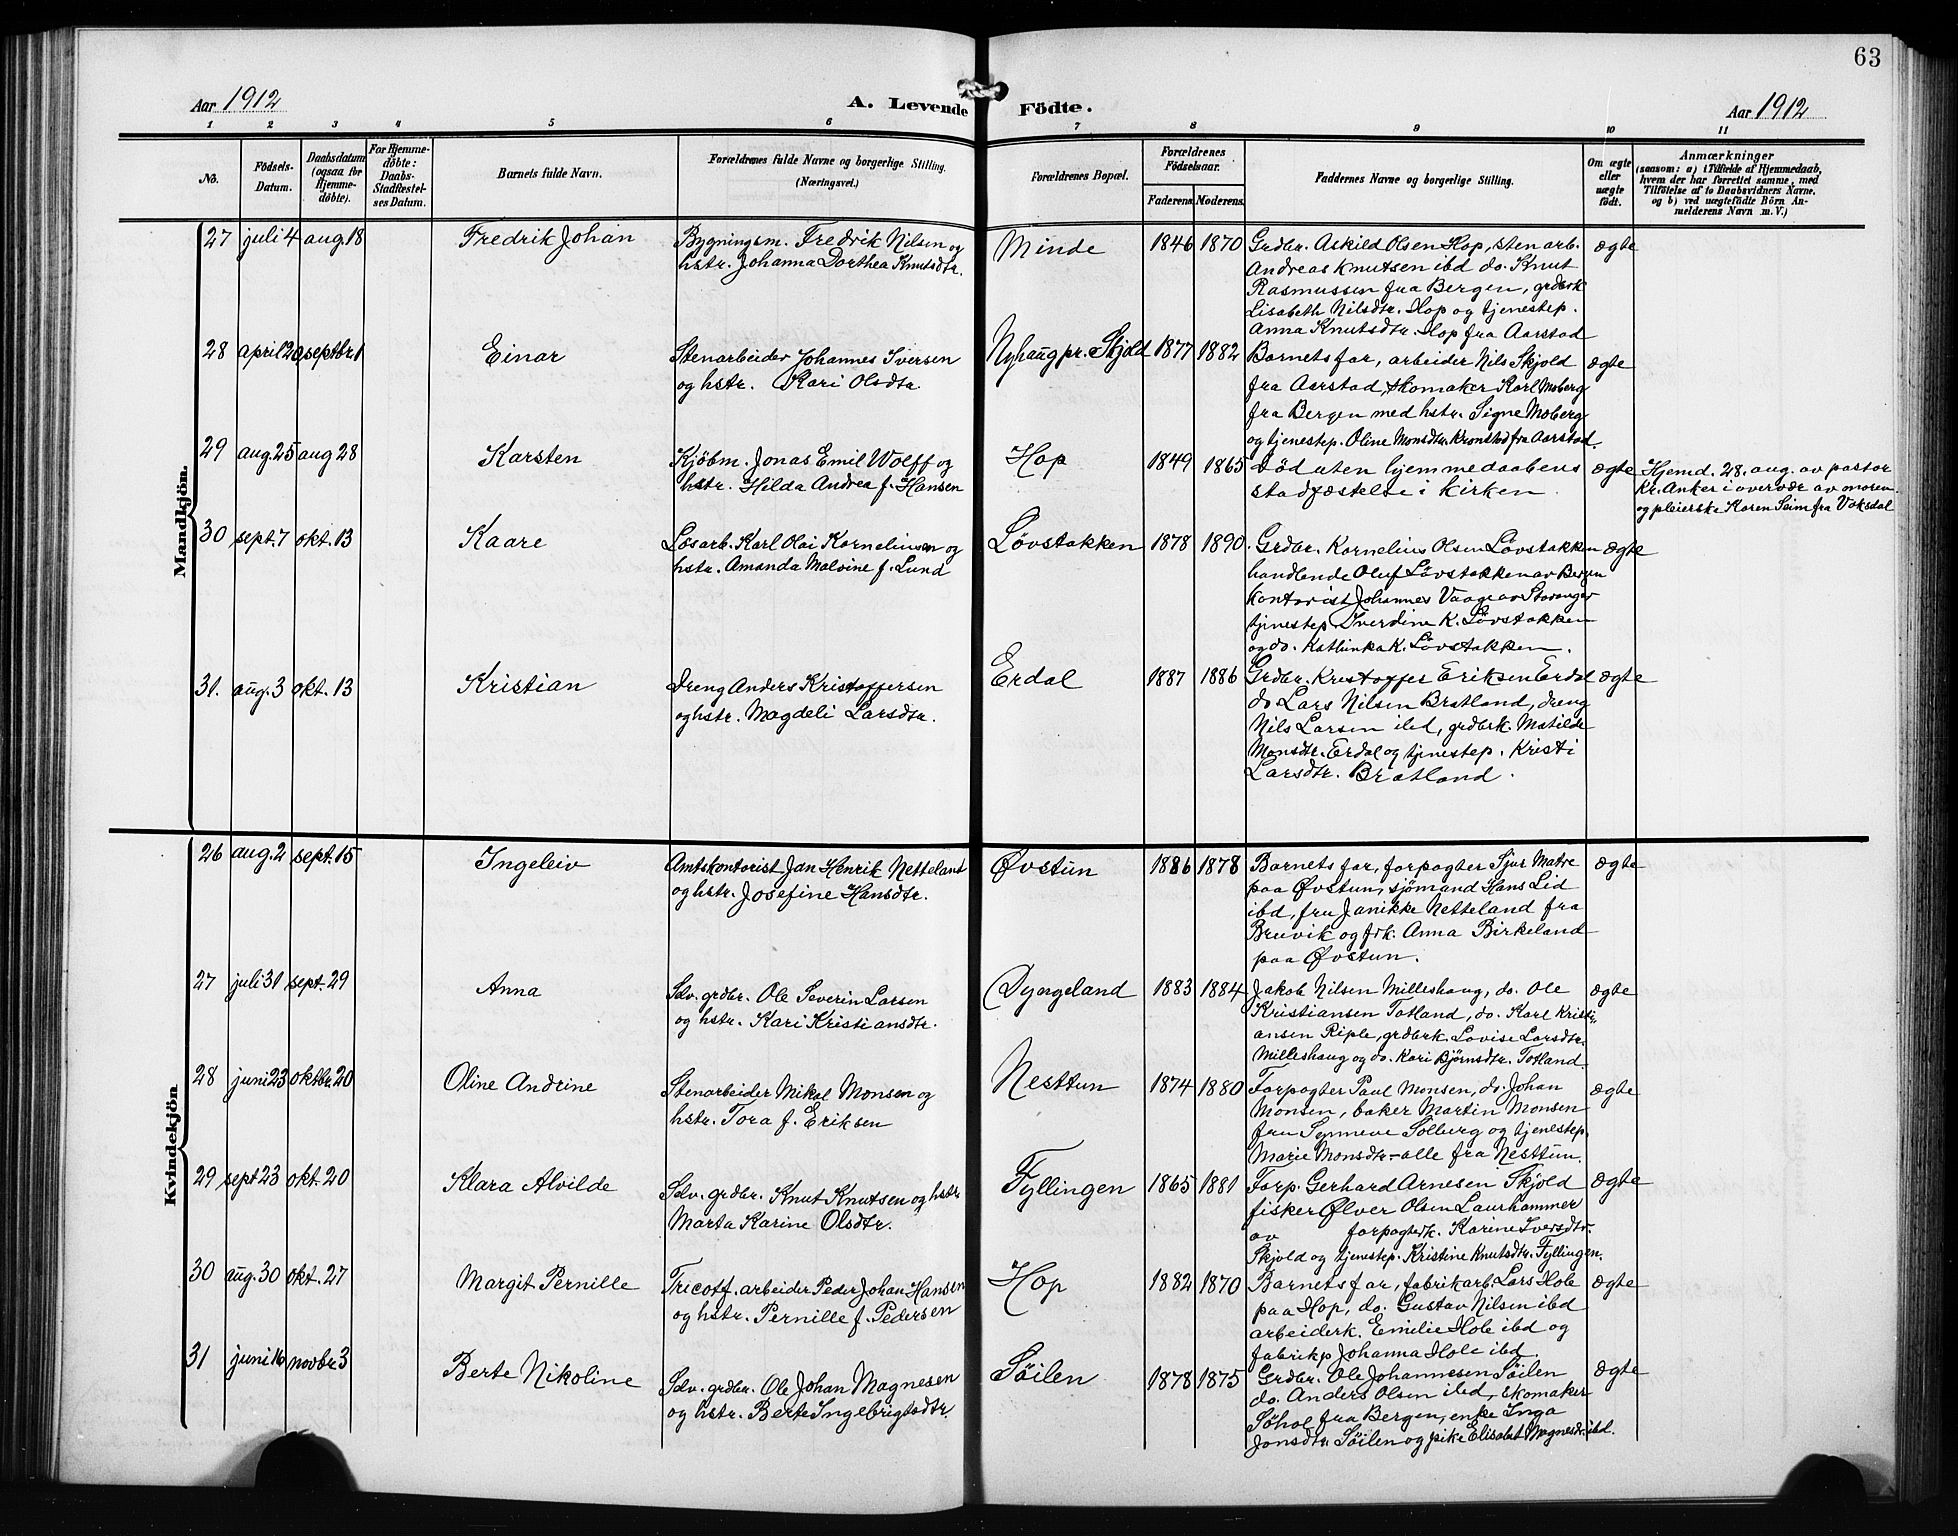 63
Aar 1912
A. Levende Födte.
Aar 1912
1 2 3 4 5 6 7 8 9 10 11
No.
Födsels-Datum.
Daabsdatum (ogsaa for Hjemme-döbte).
For Hjemme-döbte: Daabs-Stadfæstel-ses Datum.
Barnets fulde Navn.
Forældrenes fulde Navne og borgerlige Stilling. (Næringsvei.)
Forældrenes Bopæl.
Forældrenes Födselsaar.
Faderens. Moderens.
Faddernes Navne og borgerlige Stilling.
Om ægte eller uægte födt.
Anmærkninger
(saasom: a) i Tilfælde af Hjemmedaab,
hvem der har forrettet samme, med
Tilföielse af to Daabsvidners Navne,
og b) ved uægtefödte Börn An-
melderens Navn m. V.)
Mandkjön.
27 juli 4 aug 18 Fredrik Johan
Bygningsm. Fredrik Nilsen og
hstr. Johanna Dorthea Knutsdtr.
Minde 1846 1870
Grdbr. Askild Olsen Hop, sten arb.
Andreas Knutsen ibd do. Knut
Rasmussen fra Bergen, grdbrk
Lisabeth Nilsdtr. Hop og tjenestep.
Anna Knutsdtr. Hop fra Aarstad
ægte
28 april 20 septbr 1 Einar
Stenarbeider Johannes Iversen
og hstr. Kari Olsdtr.
Nyhaug pr. Skjold 1877 1882
Barnets far, arbeider Nils Skjold
fra Aarstad, skomaker Karl Moberg
fra Bergen med hstr. Signe Moberg
og tjenestep. Oline Monsdtr. Kronstad fra Aarstad.
ægte
29 aug. 25 aug 28 Karsten
Kjöbm. Jonas Emil Wolff og
hstr. Hilda Andrea f. Hansen
Hop 1849 1865
Död uten hjemmedaabens
stadfæstelse i kirken.
ægte
Hjemd. 28. aug. av pastor
Kr. Anker i overvær av moren
og pleierske Karen Seim fra Voksdal
30 sept. 7 okt. 13 Kaare
Lösarb. Karl Olai Kornelius​sen og
hstr. Amanda Malvine f. Lund
Lövstakken 1878 1890
Grdbr. Kornelius Olsen Lövstakken
handlende Oluf Lövstakken av Bergen
kontorist Johannes Vaage av Stavanger
tjenestep. Iverdine K. Lövstakken
og do. Kathinka K. Lövstakken.
ægte
31. aug. 3 okt. 13 Kristian
Dreng Anders Kristoffersen
og hstr. Magdeli Larsdtr.
Erdal 1887 1886
Grdbr. Kristoffer Eriksen Erdal
do. Lars Nilsen Bratland, dreng
Nils Larsen ibd, grdbrk. Matilde
Monsdtr. Erdal og tjenestep. Kristi
Larsdtr. Bratland.
ægte
Kvindekjön
26 aug. 2 sept. 15 Ingeleiv
Amtskontorist Jan Henrik Netteland
og hstr. Josefine Hansdtr.
Øvstun 1886 1878
Barnets far, forpagter Sjur Matre
paa Øvstun, sjömand Hans Lid
ibd, fru Janikke Netteland fra
Bruvik og frk. Anna Birkeland
paa Øvstun.
ægte
27 juli 31 sept. 29 Anna
Selv. grdbr. Ole Severin Larsen
og hstr. Kari Kristiansdtr.
Dyngeland 1883 1884
Jakob Nilsen Milleshaug, do. Ole
Kristiansen Totland, do. Karl Kristi-
ansen Riple, grdbrk. Lovise Larsdtr.
Milleshaug og do. Kari Bjørnsdtr. Totland.
ægte
28 juni 23 oktbr. 20 Oline Andrine
Stenarbeider Mikal Monsen og
hstr. Tora f. Eriksen
Nesttun 1874 1880
Forpagter Paul Monsen, do. Johan
Monsen, baker Martin Monsen
fru Synneve Solberg og tjenestep.
Marie Monsdtr. - alle fra Nesttun.
ægte
29 sept 23 okt. 20 Klara Alvilde
Selv. grdbr. Knut Knutsen og hstr
Marta Karine Olsdtr.
Fyllingen 1865 1881
Forp. Gerhard Arnesen Skjold
fisker Ølver Olsen Laurhammer
av forpagterk. Karine Iversdtr.
Skjold og tjenestep. Kristine Knutsdtr. Fyllingen.
ægte
30 aug. 30 okt. 27 Margit Pernille
Tricotf. arbeider Peder Johan Hansen
og hstr. Pernille f. Pedersen
Hop 1882 1870
Barnets far, fabrikarb. Lars Hole
paa Hop, do. Gustav Nilsen ibd
arbeiderk. Emilie Hole ibd og
fabrikp Johanna Hole ibd.
ægte
31 juni 16 novbr. 3 Berte Nikoline
Selv. grdbr. Ole Johan Magnesen
og hstr. Berte Ingebrigtsdtr.
Söilen 1878 1875
Grdbr. Ole Johannesen Söilen
do. Anders Olsen ibd, skomaker
Söhol fra Bergen, enke Inga
Jonsdtr Söilen og pike Elisabet Magnesdtr. ibd.
ægte